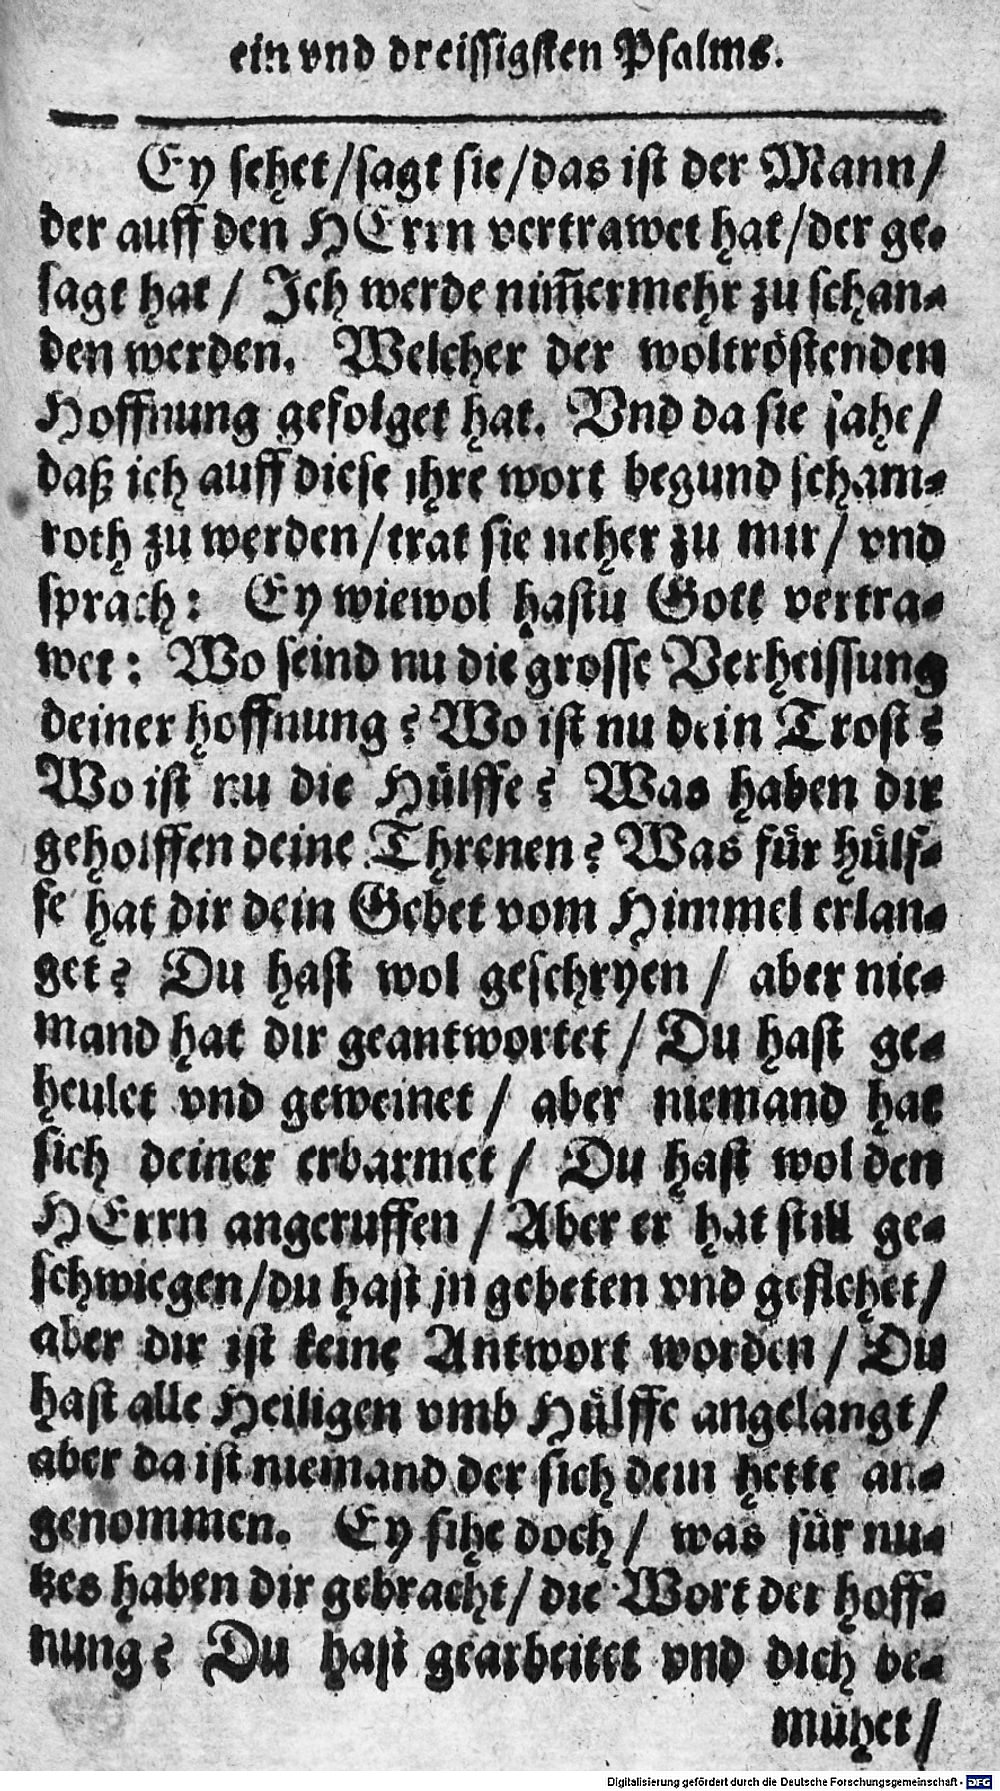 ein vnd dreissigsten Psalms.
Ey sehet/sagt sie/das ist der Mann/
der auff den HErrn vertrawet hat/der ge-
sagt hat/ Ich werde nim̃ermehr zu schan-
den werden. Welcher der woltröstenden
Hoffnung gefolget hat. Vnd da sie sahe/
daß ich auff diese ihre wort begund scham-
roth zu werden/trat sie neher zu mir/ vnd
sprach: Ey wiewol hastu Gott vertra-
wet: Wo seind nu die grosse Verheissung
deiner hoffnung? Wo ist nu dein Trost?
Wo ist nu die Hülffe? Was haben dir
geholffen deine Threnen? Was für hülf-
fe hat dir dein Gebet vom Himmel erlan-
get? Du hast wol geschryen/ aber nie-
mand hat dir geantwortet/ Du hast ge-
heulet vnd geweinet/ aber niemand hat
sich deiner erbarmet/ Du hast wol den
HErrn angeruffen/ Aber er hat still ge-
schwiegen/du hast jn gebeten vnd geflehet/
aber dir ist keine Antwort worden/ Du
hast alle Heiligen vmb Hülffe angelangt/
aber da ist niemand der sich dein hette an-
genommen. Ey sihe doch/ was für nu-
tzes haben dir gebracht/ die Wort der hoff-
nung? Du hast gearbeitet vnd dich be-
mühet/
Digitalisierung gefördert durch die Deutsche Forschungsgemeinschaft - DFG